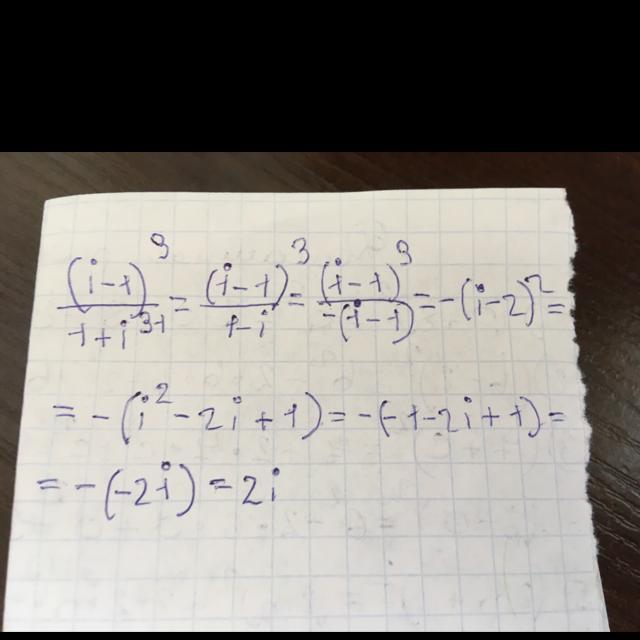 (i-1)³/(1+i³¹) = (i-1)³/(1-i) = (i-1)³/(-(i-1)) = -(i-2)² =
= -(i² - 2i + 1) = -(-1-2i+1) =
= -(-2i) = 2i